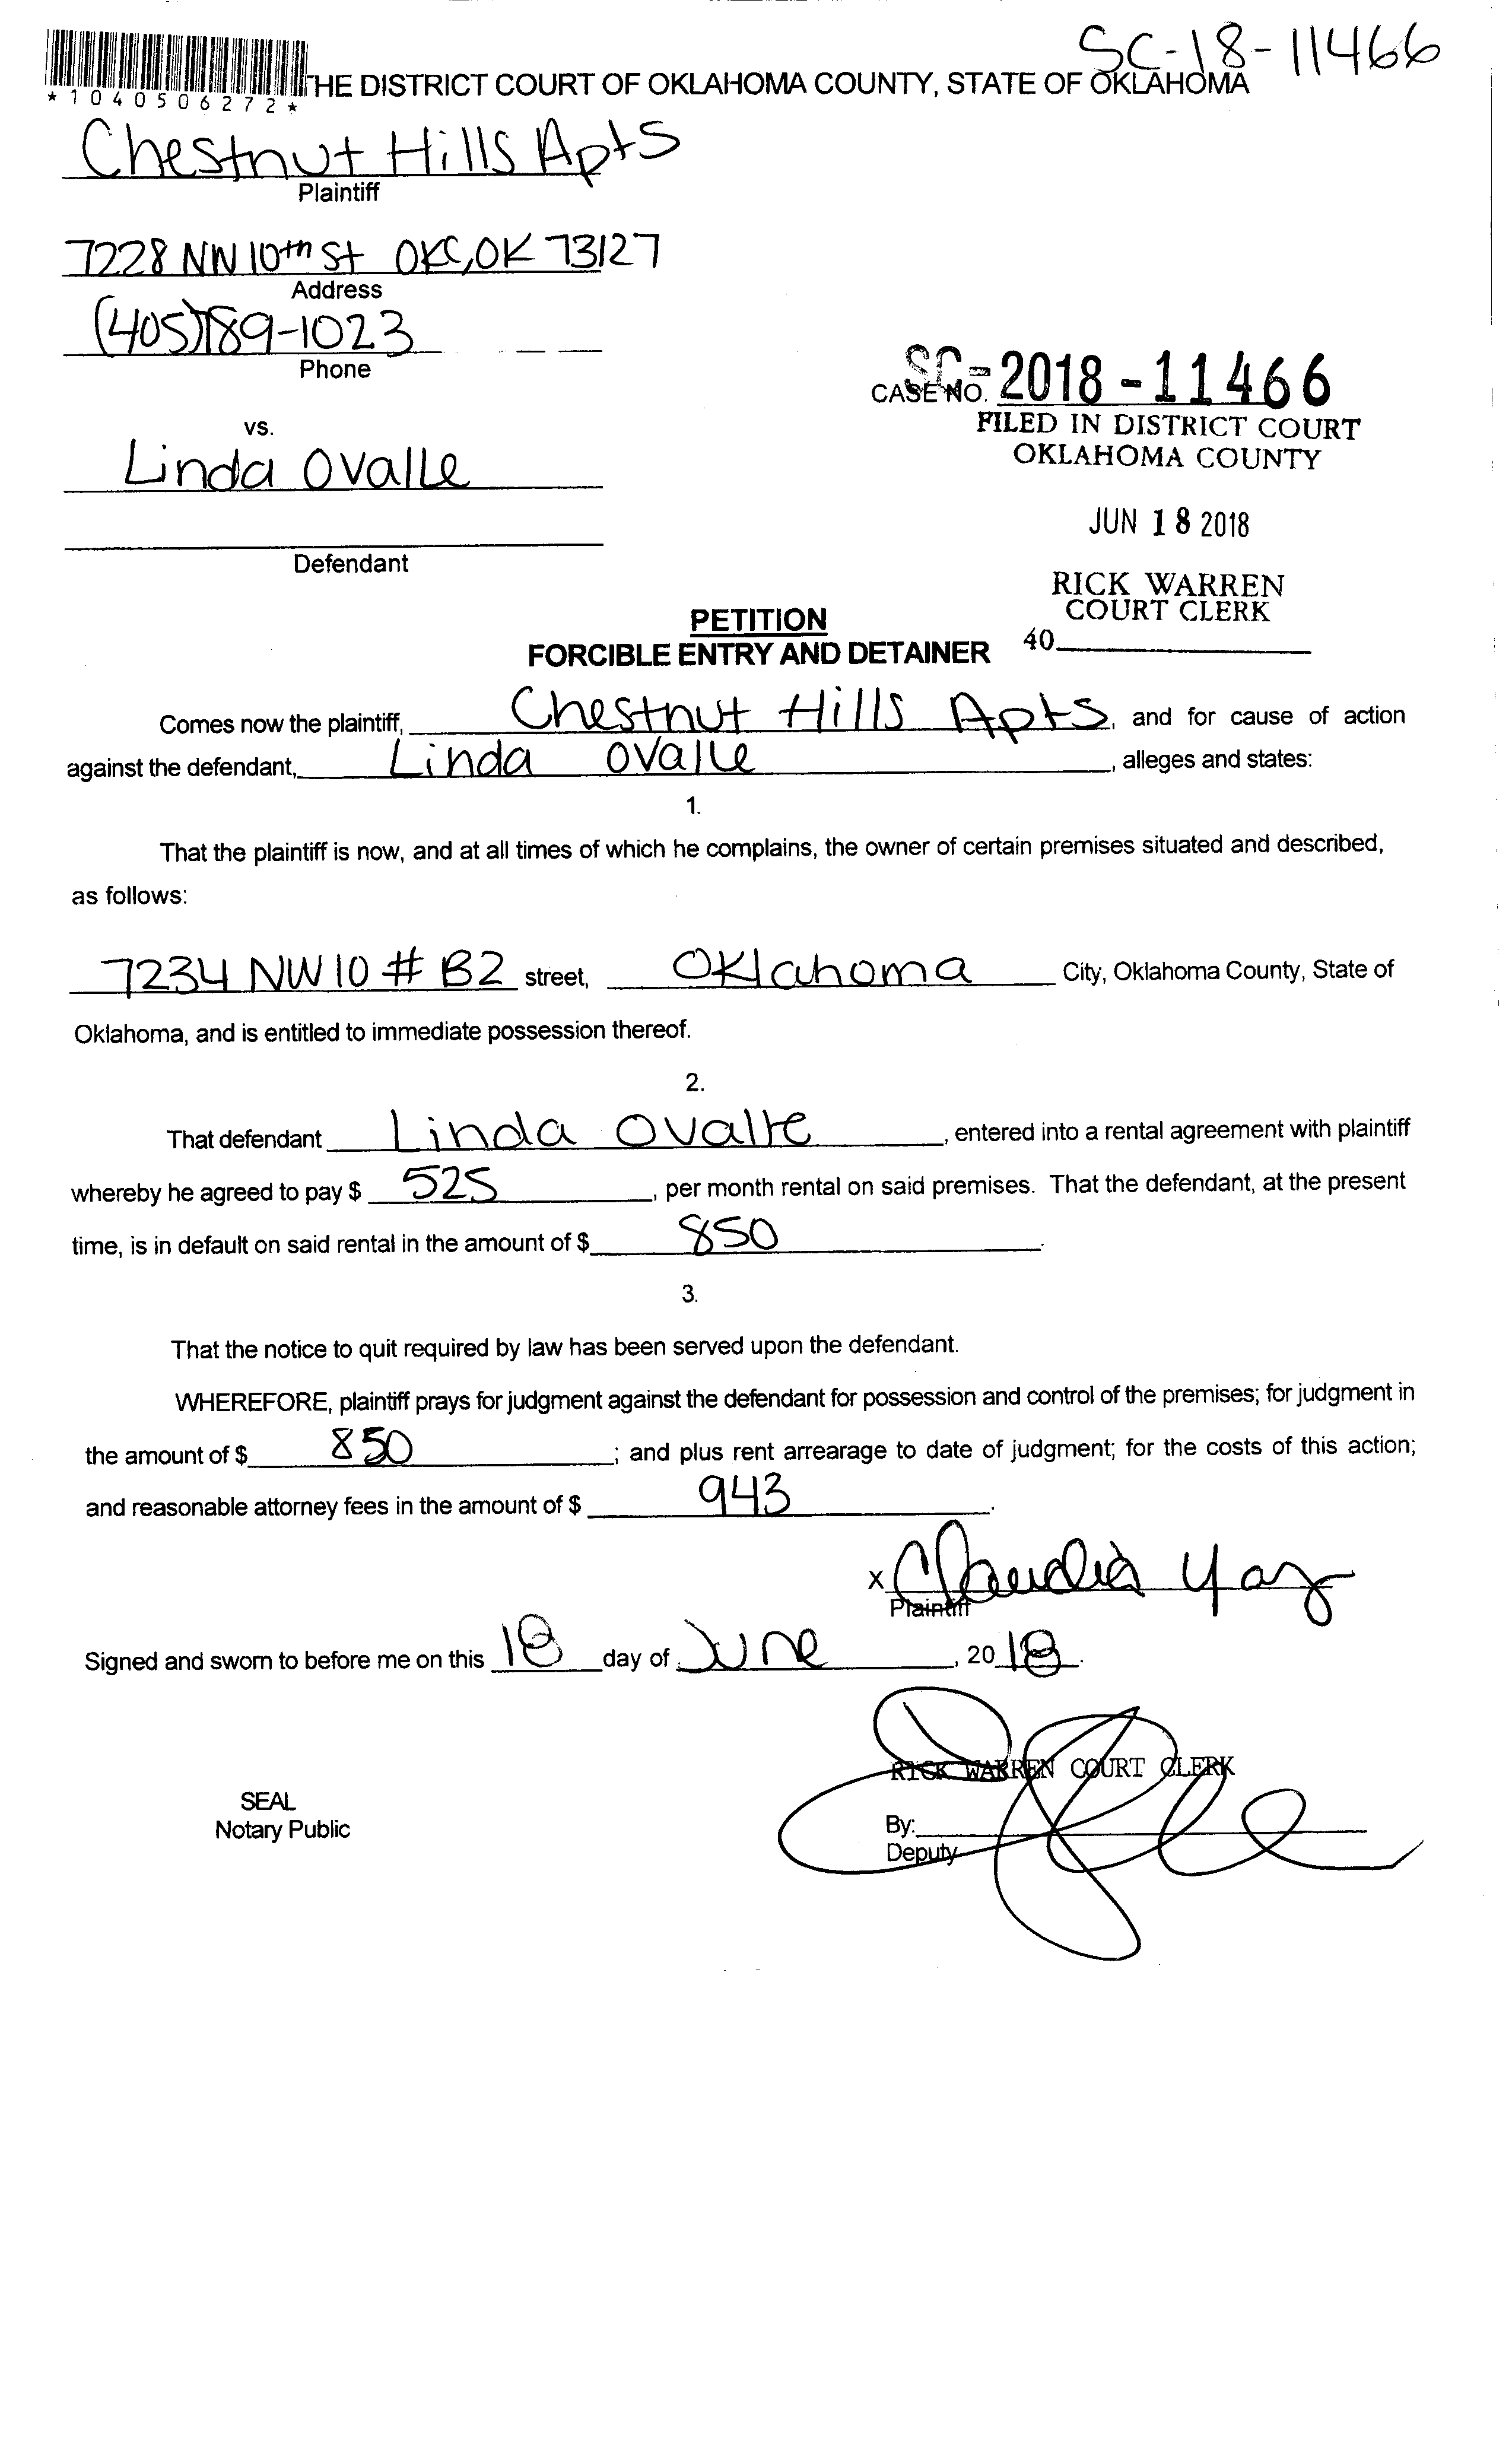 SC-18-11466
THE DISTRICT COURT OF OKLAHOMA COUNTY, STATE OF OKLAHOMA
*1040506272*
Chestnut Hills Apts
Plaintiff
7228 NW 10th St OKC, OK 73127
Address
(405)789-1023
Phone
CASE NO. SC-2018-11466
FILED IN DISTRICT COURT
OKLAHOMA COUNTY
vs.
Linda Ovalle
JUN 18 2018
Defendant
RICK WARREN
COURT CLERK
40
PETITION
FORCIBLE ENTRY AND DETAINER
Comes now the plaintiff, Chestnut Hills Apts, and for cause of action
against the defendant, Linda Ovalle, alleges and states:
1.
That the plaintiff is now, and at all times of which he complains, the owner of certain premises situated and described,
as follows:
7234 NW 10 # B2 street, Oklahoma City, Oklahoma County, State of
Oklahoma, and is entitled to immediate possession thereof.
2.
That defendant Linda Ovalle, entered into a rental agreement with plaintiff
whereby he agreed to pay $ 525, per month rental on said premises. That the defendant, at the present
time, is in default on said rental in the amount of $ 850.
3.
That the notice to quit required by law has been served upon the defendant.
WHEREFORE, plaintiff prays for judgment against the defendant for possession and control of the premises; for judgment in
the amount of $ 850; and plus rent arrearage to date of judgment; for the costs of this action;
and reasonable attorney fees in the amount of $ 943.
x Claudia Yaz
Plaintiff
Signed and sworn to before me on this 18 day of June, 2018.
RICK WARREN COURT CLERK
SEAL
Notary Public
By:
Deputy